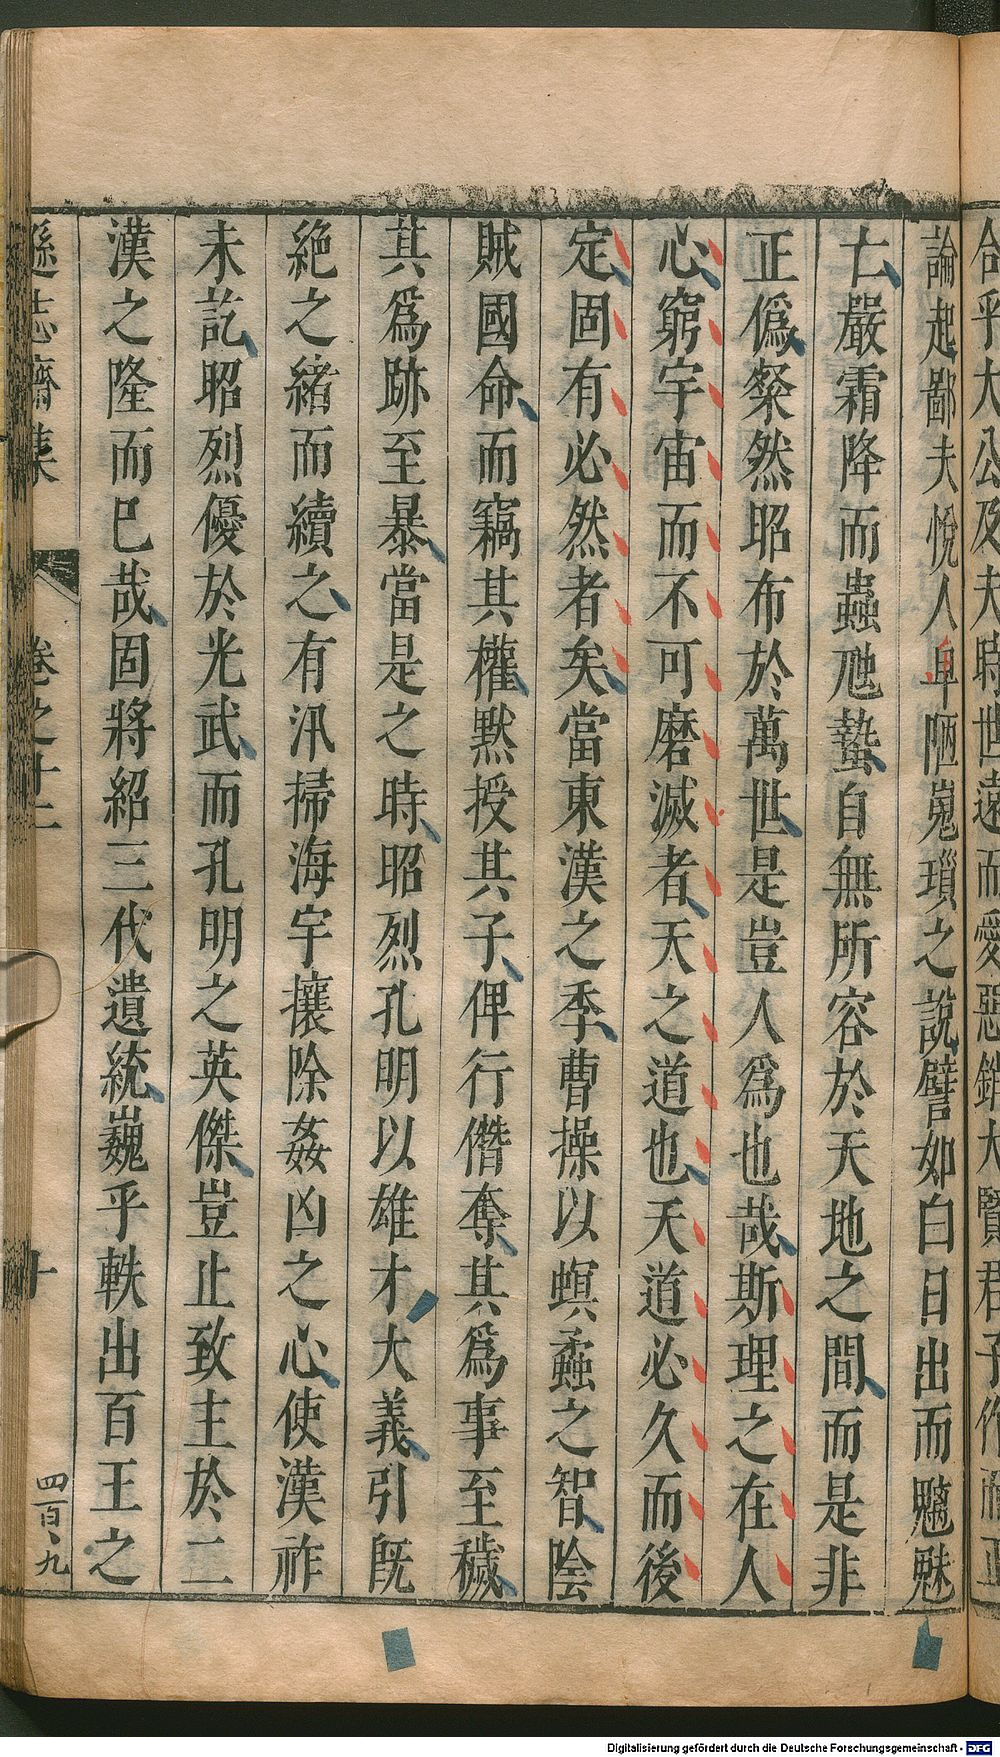 合乎大公及夫時世遠而愛惡銷大賢君子作而正
論起鄙夫悅人卑陋嵬瑣之說譬如白日出而魑魅
亡嚴霜降而蟲虺蟄自無所容於天地之間而是非
正僞粲然昭布於萬世是豈人爲也哉斯理之在人
心窮宇宙而不可磨滅者天之道也天道必久而後
定固有必然者矣當東漢之季曹操以螟蟊之智陰
賊國命而竊其權默授其子俾行僭奪其爲事至穢
其爲跡至暴當是之時昭烈孔明以雄才大義引旣
絕之緒而續之有汛掃海宇攘除姦凶之心使漢祚
未訖昭烈優於光武而孔明之英傑豈止致主於二
漢之隆而已哉固將紹三代遺統巍乎軼出百王之
遜志齋集 卷之十二 十
四百九
Digitalisierung gefördert durch die Deutsche Forschungsgemeinschaft - DFG